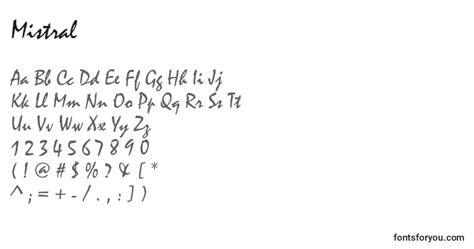 Mistral
Aa Bb Cc Dd Ee Ff Gg Hh Ii Jj
Kk Ll Mm Nn Oo Pp Qq Rr Ss Tt
Uu Vv Ww Xx Yy Zz
1 2 3 4 5 6 7 8 9 0
( ! @ # $ % ? & [ *
^ ; = + - / . , : ] )
fontsforyou.com